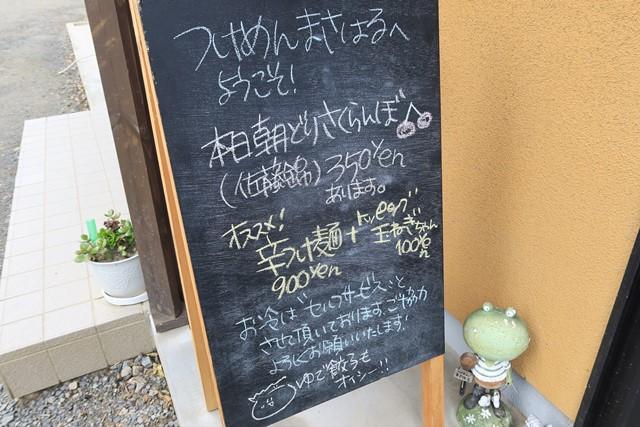 つけめんまさはるへ
ようこそ!
本日朝どりさくらんぼ
(佐藤錦)350yen
あります。
オススメ!
辛つけ麺+トッピング
玉ねぎちゃん
900yen
100yen
お冷は"セルフサービス"と
させて頂いております。ご協力
よろしくお願いいたします!
ゆで餃子も
オイシー!!